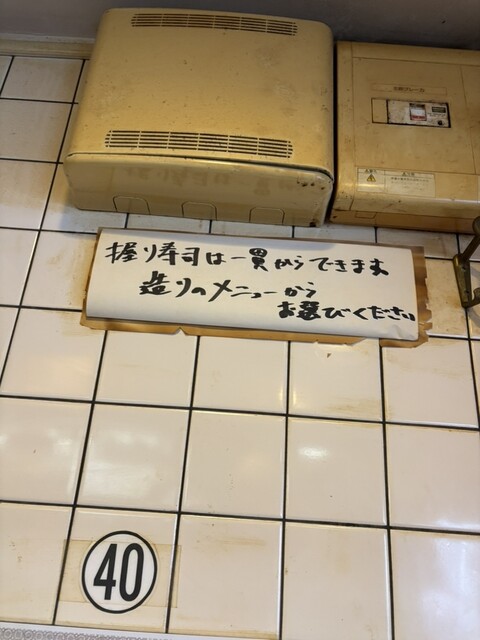 握り寿司は一貫からできます
造りのメニューから
お選びください
40